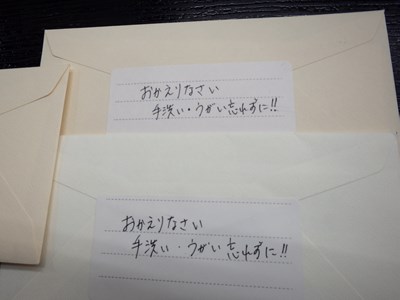 おかえりなさい
手洗い・うがい忘れずに!!
おかえりなさい
手洗い・うがい忘れずに!!